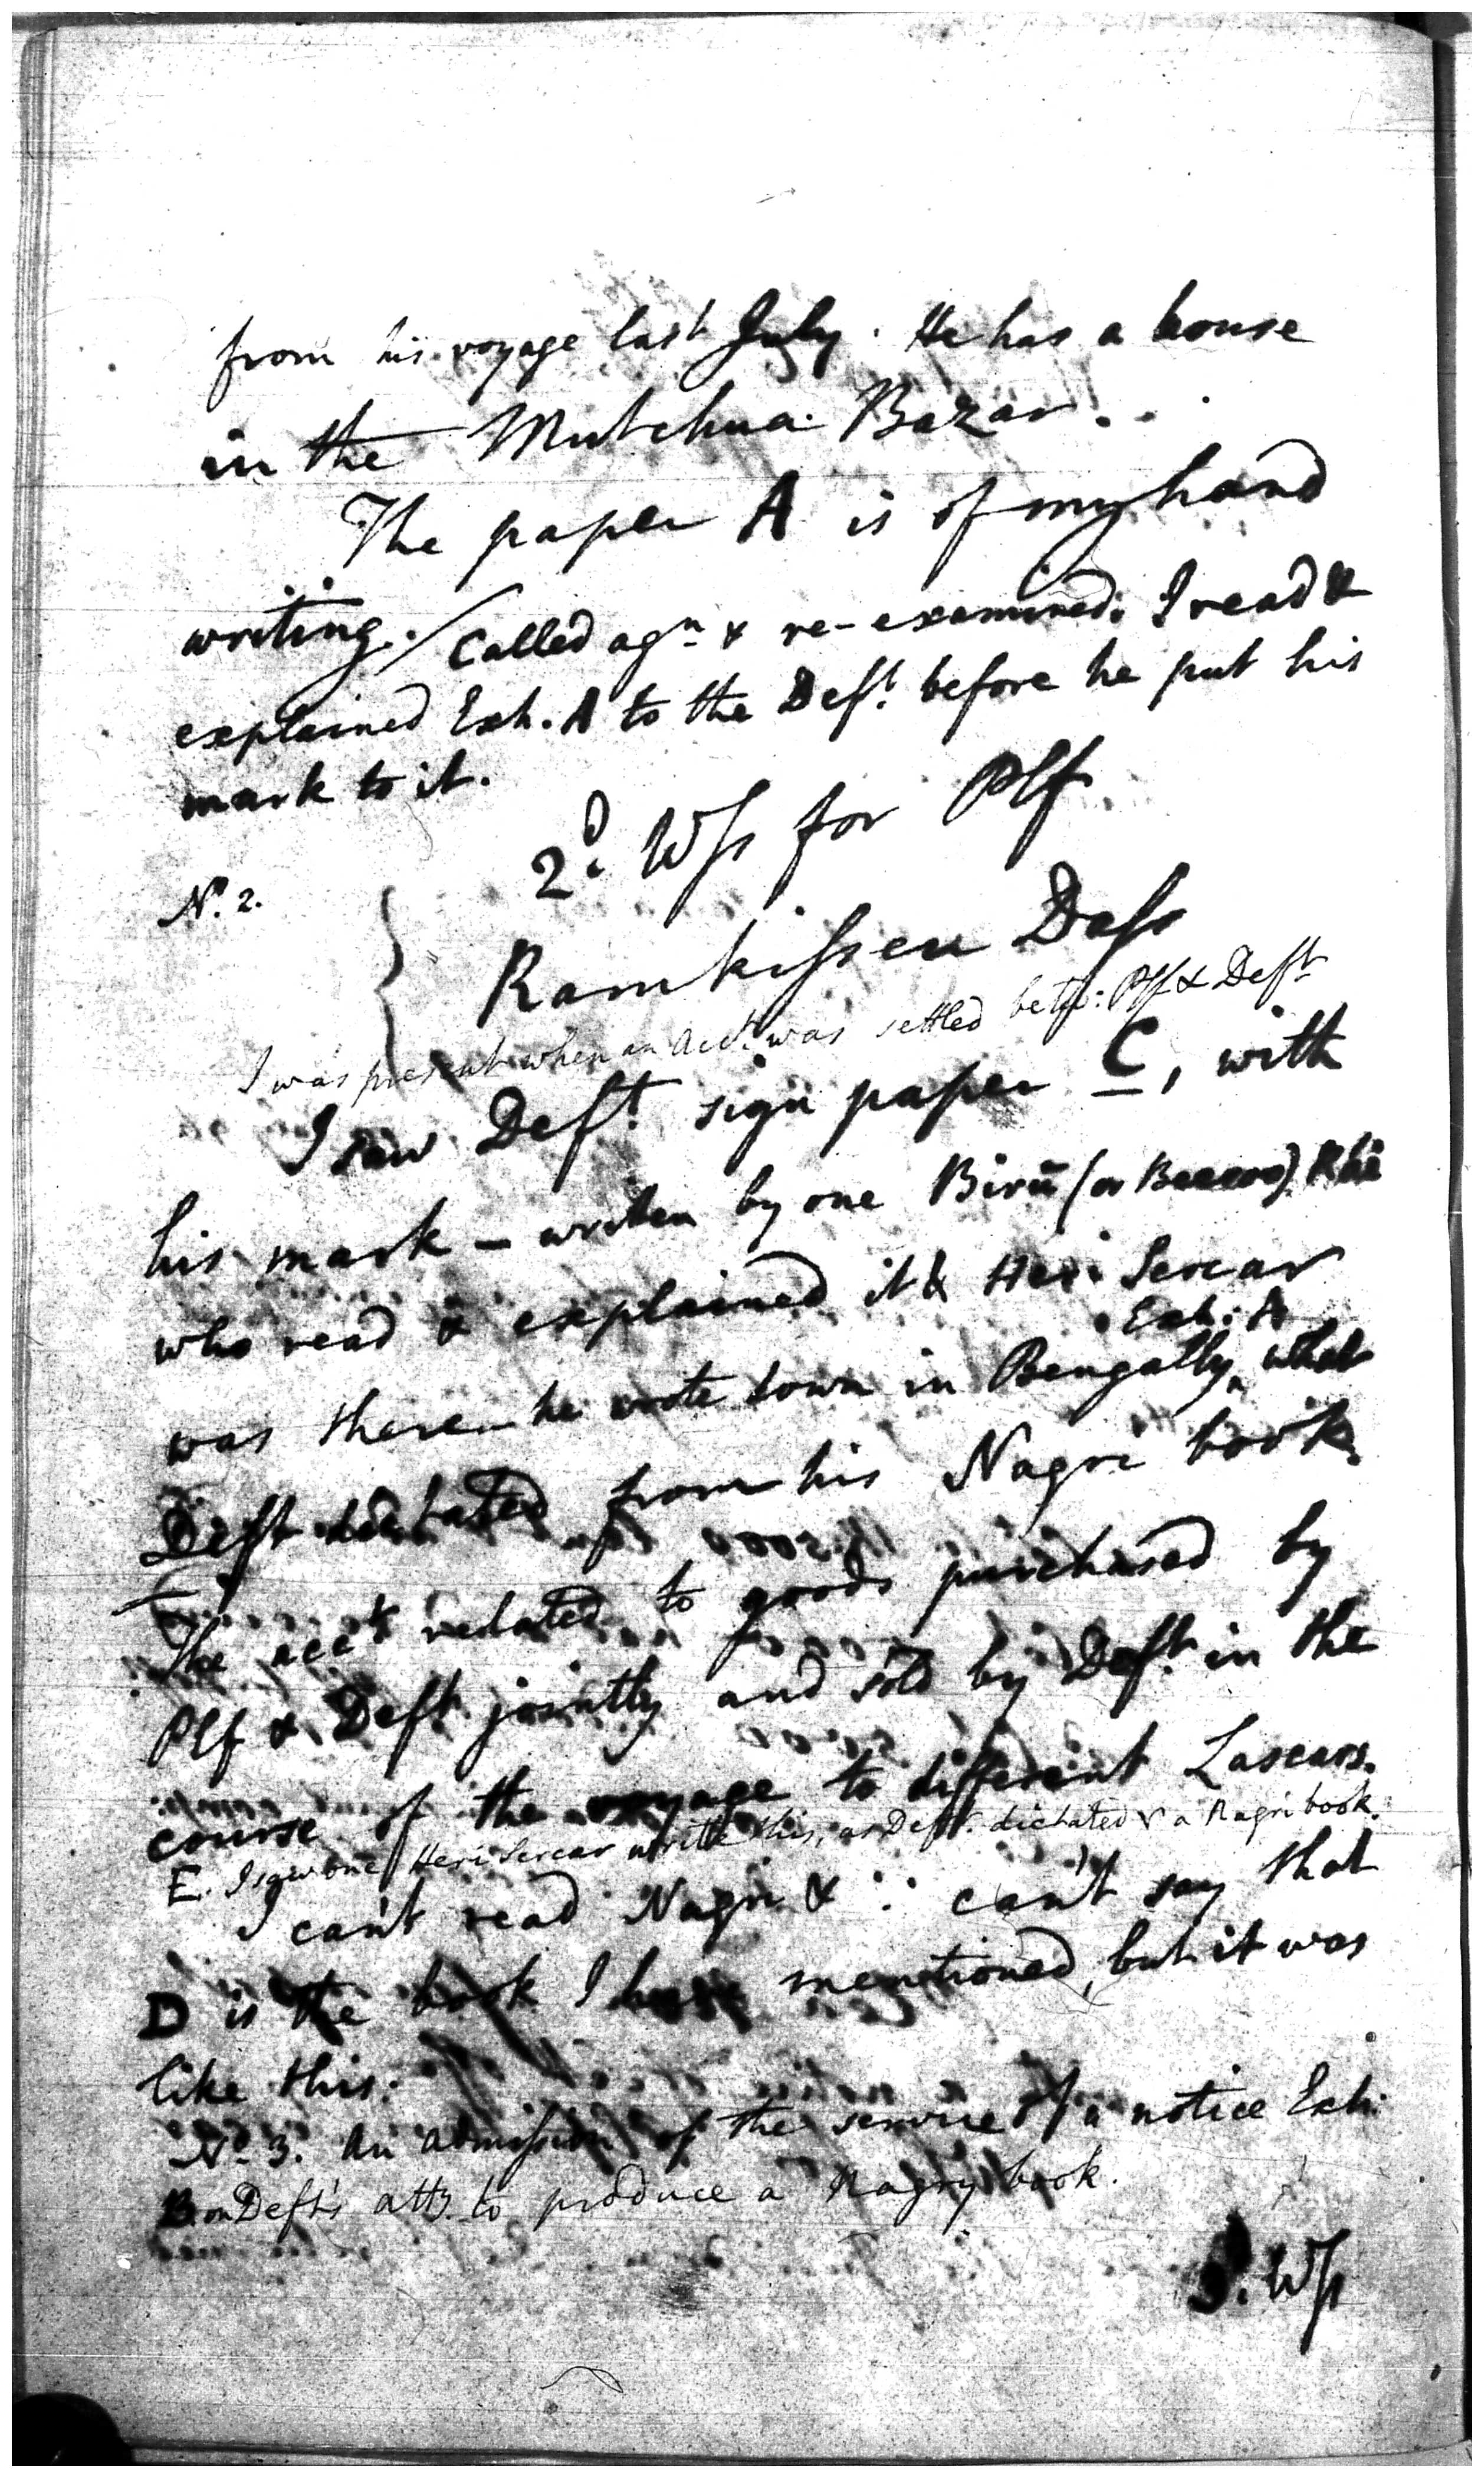 from his voyage last July. He has a house
in the Mutchua Bazar.
The paper A is of my hand
writing. / Called agn & re-examined: I read &
explained Exh. A to the Deft. before he put his
mark to it.
2d. Wss for Plf
No. 2.
Ramkissen Dass
I was present when an acct. was settled betw: Plf & Deft
I saw Deft. sign paper C, with
his mark – written by one Birū (or Beeroo)
who read & explained it & Heri Sercar
Exh: A
was there – he wrote down in Bengally what
Deft dictated from his Nagri book.
The acct related to goods purchased by
Plf & Deft jointly and sold by Deft. in the
course of the voyage to different Lascars.
E. I saw one Heri Sercar write this, as Deft. dictated & a Nagri book.
I can't read Nagri & ∵ can't say that
D is the book I have mentioned, but it was
like this.
No. 3. An admission of the service of a notice Exh:
B on Deft's atty. to produce a Nagry book.
3. Wss